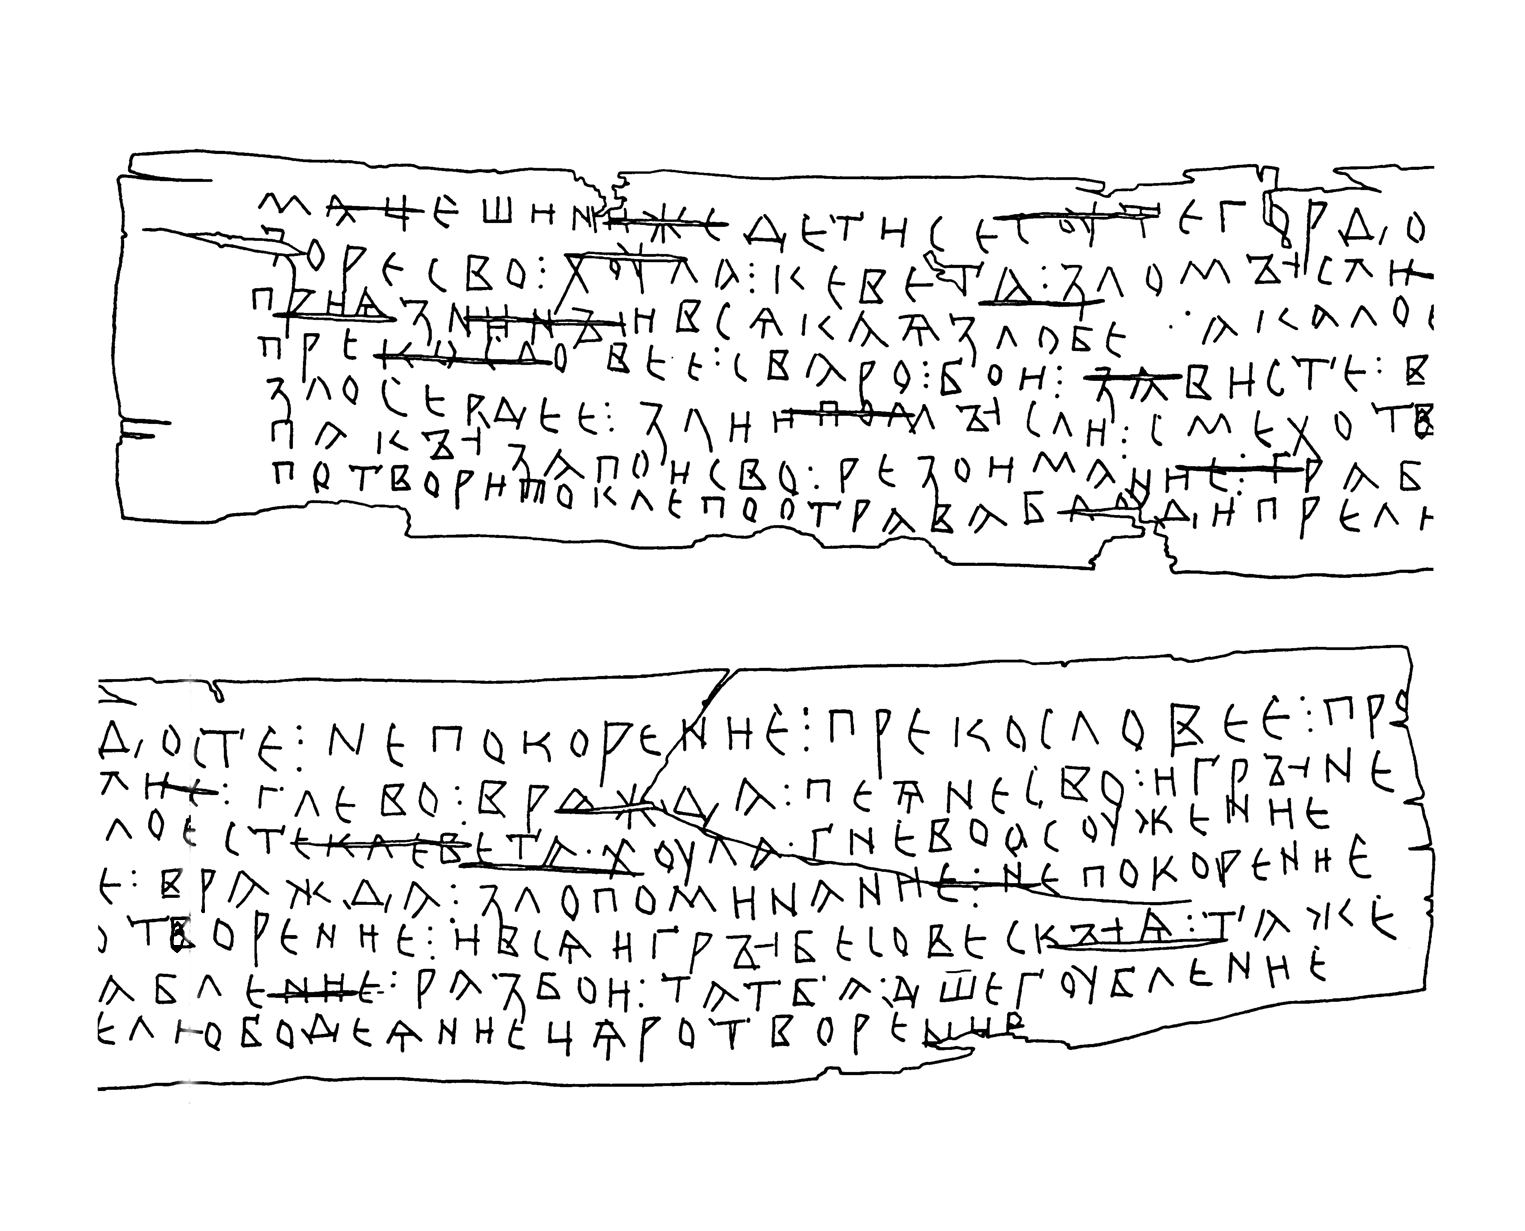 МАЧЕШИ ИЖЕДЕТИСЕСОУТЕГОРДО
ЗОРЕСВО:ХОУЛА:КЕВЕТА:ЗЛОМЪІСЛИ
ВСѦКАѦЗЛОБЕ АКАЛО
ПРЕКО ВЕЕ:СВАРО:БОИ:ЗАВИСТЕ:В
ЗЛОСЕРДЕЕ:ЗЛИИПОМЪІСЛИ:СМЕХОТВ
ПАКЪІЗАПОИСВО:РЕЗОИМАНИЕ:ГРАБ
ПОТВОРИПОКЛЕПООТРАВАБЛОДИПРЕЛЮ
ДОСТЕ:НЕПОКОРЕНИЕ:ПРЕКОСЛОВЕЕ:ПРО
ЛИЕ:ГЛЕВО:ВРАЖДА:ПЕѦНЕСВО:ИГРЪІНЕ
ЛОЕСТЕКЛЕВЕТА·ХОУЛА·ГНЕВООСОУЖЕНИЕ
Е:ВРАЖДА:ЗЛОПОМИНАНИЕ:НЕПОКОРЕНИЕ
ОТВОРЕНИЕ:ИВСѦИГРЪІБЕСОВЕСКЪІѦ:ТАЖЕ
АБЛЕНИЕ:РАЗБОИ:ТАТБА:ДШЕГОУБЛЕНИЕ
ЕЛЮБОДЕѦНИЕЧѦРОТВОРЕНИЕ